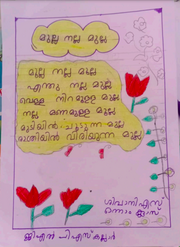 മുല്ല നല്ല മുല്ല
മുല്ല നല്ല മുല്ല
എന്തു നല്ല മുല്ല
വെള്ള നിറമുള്ള മുല്ല
നല്ല മണമുള്ള മുല്ല
മുടിയിൽ ചൂടുന്ന മുല്ല
രാത്രിയിൽ വിരിയുന്ന മുല്ല
ശിവാനി എസ്
ഒന്നാം ക്ലാസ്
ജി എൻ പി എസ്